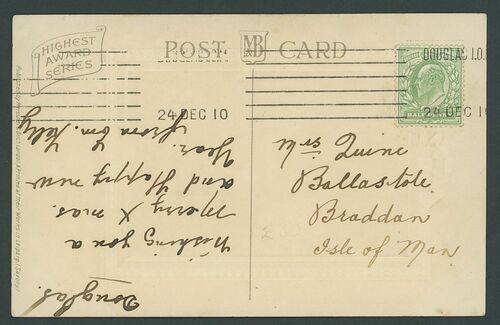 HIGHEST
AWARD
SERIES
POST MB CARD
DOUGLAS I.O.
24 DEC 10
24 DEC 10
Douglas.
Wishing you a
Merry X mas.
and Happy new
Year.
from Em. Kelly
Mrs Quine
Ballastole.
Braddan
Isle of Man